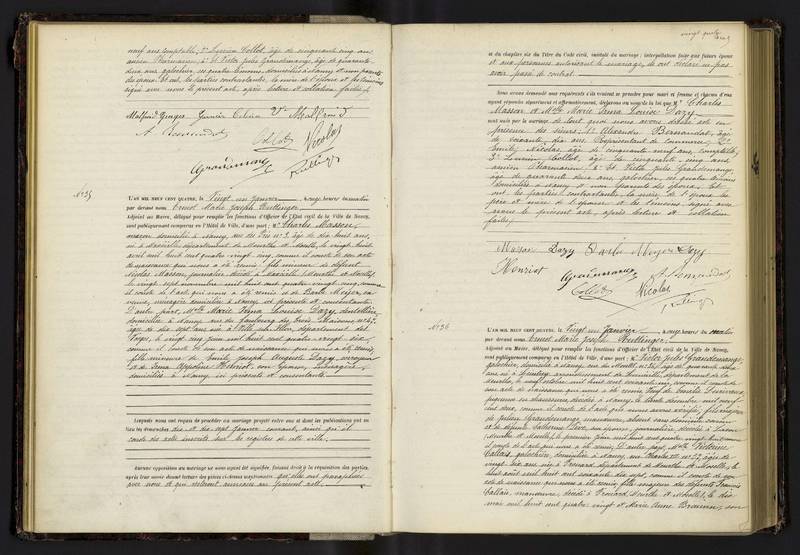 neuf ans, comptable; 3° Lucien Collot, âge de cinquante cinq ans
ancien Pharmacien; 4° et Victor Jules Grandemange, âgé de quarante
deux ans, galochier, ces quatre témoins, domiciliés à Nancy et non parents
des époux. Et ont, les parties contractantes, la mère de l'épouse et les témoins
signé avec nous le présent acte, après lecture et collation faites.
Collot
Nicolas
Grandemange
N° 35
L'AN MIL NEUF CENT QUATRE, le Vingt un Janvier, à onze heures du matin
par devant nous Ernest Marie Joseph
Adjoint au Maire, délégué pour remplir les fonctions d'Officier de l'État civil de la Ville de Nancy,
sont publiquement comparus en l'Hôtel de Ville, d'une part: M. Charles Masson,
maçon domicilié à Nancy, rue N° 3, âgé de dix huit ans,
né à Maxéville, département de Meurthe et Moselle, le vingt huit
avril mil huit cent quatre vingt cinq, comme il conste de son acte
de naissance qui nous a été remis; fils mineur de défunt
Nicolas Masson, journalier, décédé à Maxéville (Meurthe et Moselle)
le vingt sept novembre mil huit cent quatre vingt cinq, comme
il conste de l'acte qui nous a été remis et de Barbe Meyer, sa
veuve, ménagère, domiciliée à Nancy, ici présente et consentante.
D'autre part, Melle Marie Anna Louise Dazy, dentellière,
domiciliée à Nancy, rue du faubourg des Trois Maisons, N° 47,
âgée de dix sept ans, née à Ville sur Illon, département des
Vosges, le vingt cinq juin mil huit cent quatre vingt six,
comme il conste de son acte de naissance qui nous a été remis;
fille mineure de Emile Joseph Auguste Dazy,
et de Anna Appoline Henriot, son épouse, ménagère,
domiciliés à Nancy, ici présents et consentants.
Lesquels nous ont requis de procéder au mariage projeté entre eux et dont les publications ont eu
lieu les dimanches dix et dix sept janvier courant, ainsi qu'il
conste des actes inscrits sur les registres de cette ville.
Aucune opposition au mariage ne nous ayant été signifiée, faisant droit à la réquisition des parties,
après leur avoir donné lecture des pièces ci-dessus mentionnées qu'elles ont paraphées
avec nous et qui resteront annexées au présent acte
vingt quatre
et du chapitre six du Titre du Code civil, intitulé du mariage; interpellation faite aux futurs époux
et aux personnes autorisant le mariage, ils ont déclaré ne pas
avoir passé de contrat.
Nous avons demandé aux requérants s'ils veulent se prendre pour mari et femme et chacun d'eux
ayant répondu séparément et affirmativement, déclarons au nom de la loi que M. Charles
Masson et Melle Marie Anna Louise Dazy
sont unis par le mariage. De tout quoi nous avons dressé acte en
présence des sieurs: 1° Alexandre Bersandat, âgé
de soixante dix ans, Représentant de commerce; 2°
Emile Nicolas, âgé de cinquante neuf ans, comptable;
3° Lucien Collot, âgé de cinquante cinq ans,
ancien Pharmacien; 4° Et Victor Jules Grandemange,
âgé de quarante deux ans, galochier, ces quatre témoins
domiciliés à Nancy et non parents des époux. Et
ont, les parties contractantes, la mère de l'époux, les
père et mère de l'épouse et les témoins, signé avec
nous le présent acte, après lecture et collation
faites.
Masson Dazy Barbe Meyer Dazy
Henriot Grandemange
Collot Nicolas
N° 36
L'AN MIL NEUF CENT QUATRE, le Vingt un Janvier, à onze heures du matin
par devant nous Ernest Marie Joseph
Adjoint au Maire, délégué pour remplir les fonctions d'Officier de l'État civil de la Ville de Nancy,
sont publiquement comparus en l'Hôtel de Ville, d'une part: M. Victor Jules Grandemange,
galochier, domicilié à Nancy, âgé de quarante deux
ans, né à arrondissement de Lunéville, département de la
Meurthe, le vingt octobre mil huit cent soixante un, comme il conste de
son acte de naissance qui nous a été remis; Veuf de
piqueuse en chaussures, décédée à Nancy, le trente décembre mil neuf
cent deux, comme il conste de l'acte que nous avons vérifié; fils majeur
de Julien Grandemange, manœuvre, absent sans domicile connu
et de défunte Catherine son épouse, journalière, décédée à
(Meurthe et Moselle), le premier juin mil huit cent quatre vingt
D'autre part, Melle Victorine
Callais, galochière, domiciliée à Nancy, rue Charles III, N° 27, âgée de
vingt six ans, née à Frouard, département de Meurthe et Moselle, le
huit août mil huit cent soixante dix sept, comme il conste de son
acte de naissance qui nous a été remis; fille majeure des défunts Francis
Callais, manœuvre, décédé à Frouard (Meurthe et Moselle), le dix
mai mil huit cent quatre vingt et Marie Anne Braumann, son